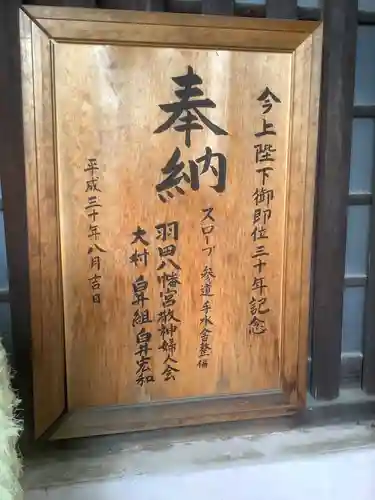 今上陛下御即位三十年記念
奉納
スロープ参道手水舎整備
羽田八幡宮敬神婦人会
大村 白井組白井宏和
平成三十年八月吉日